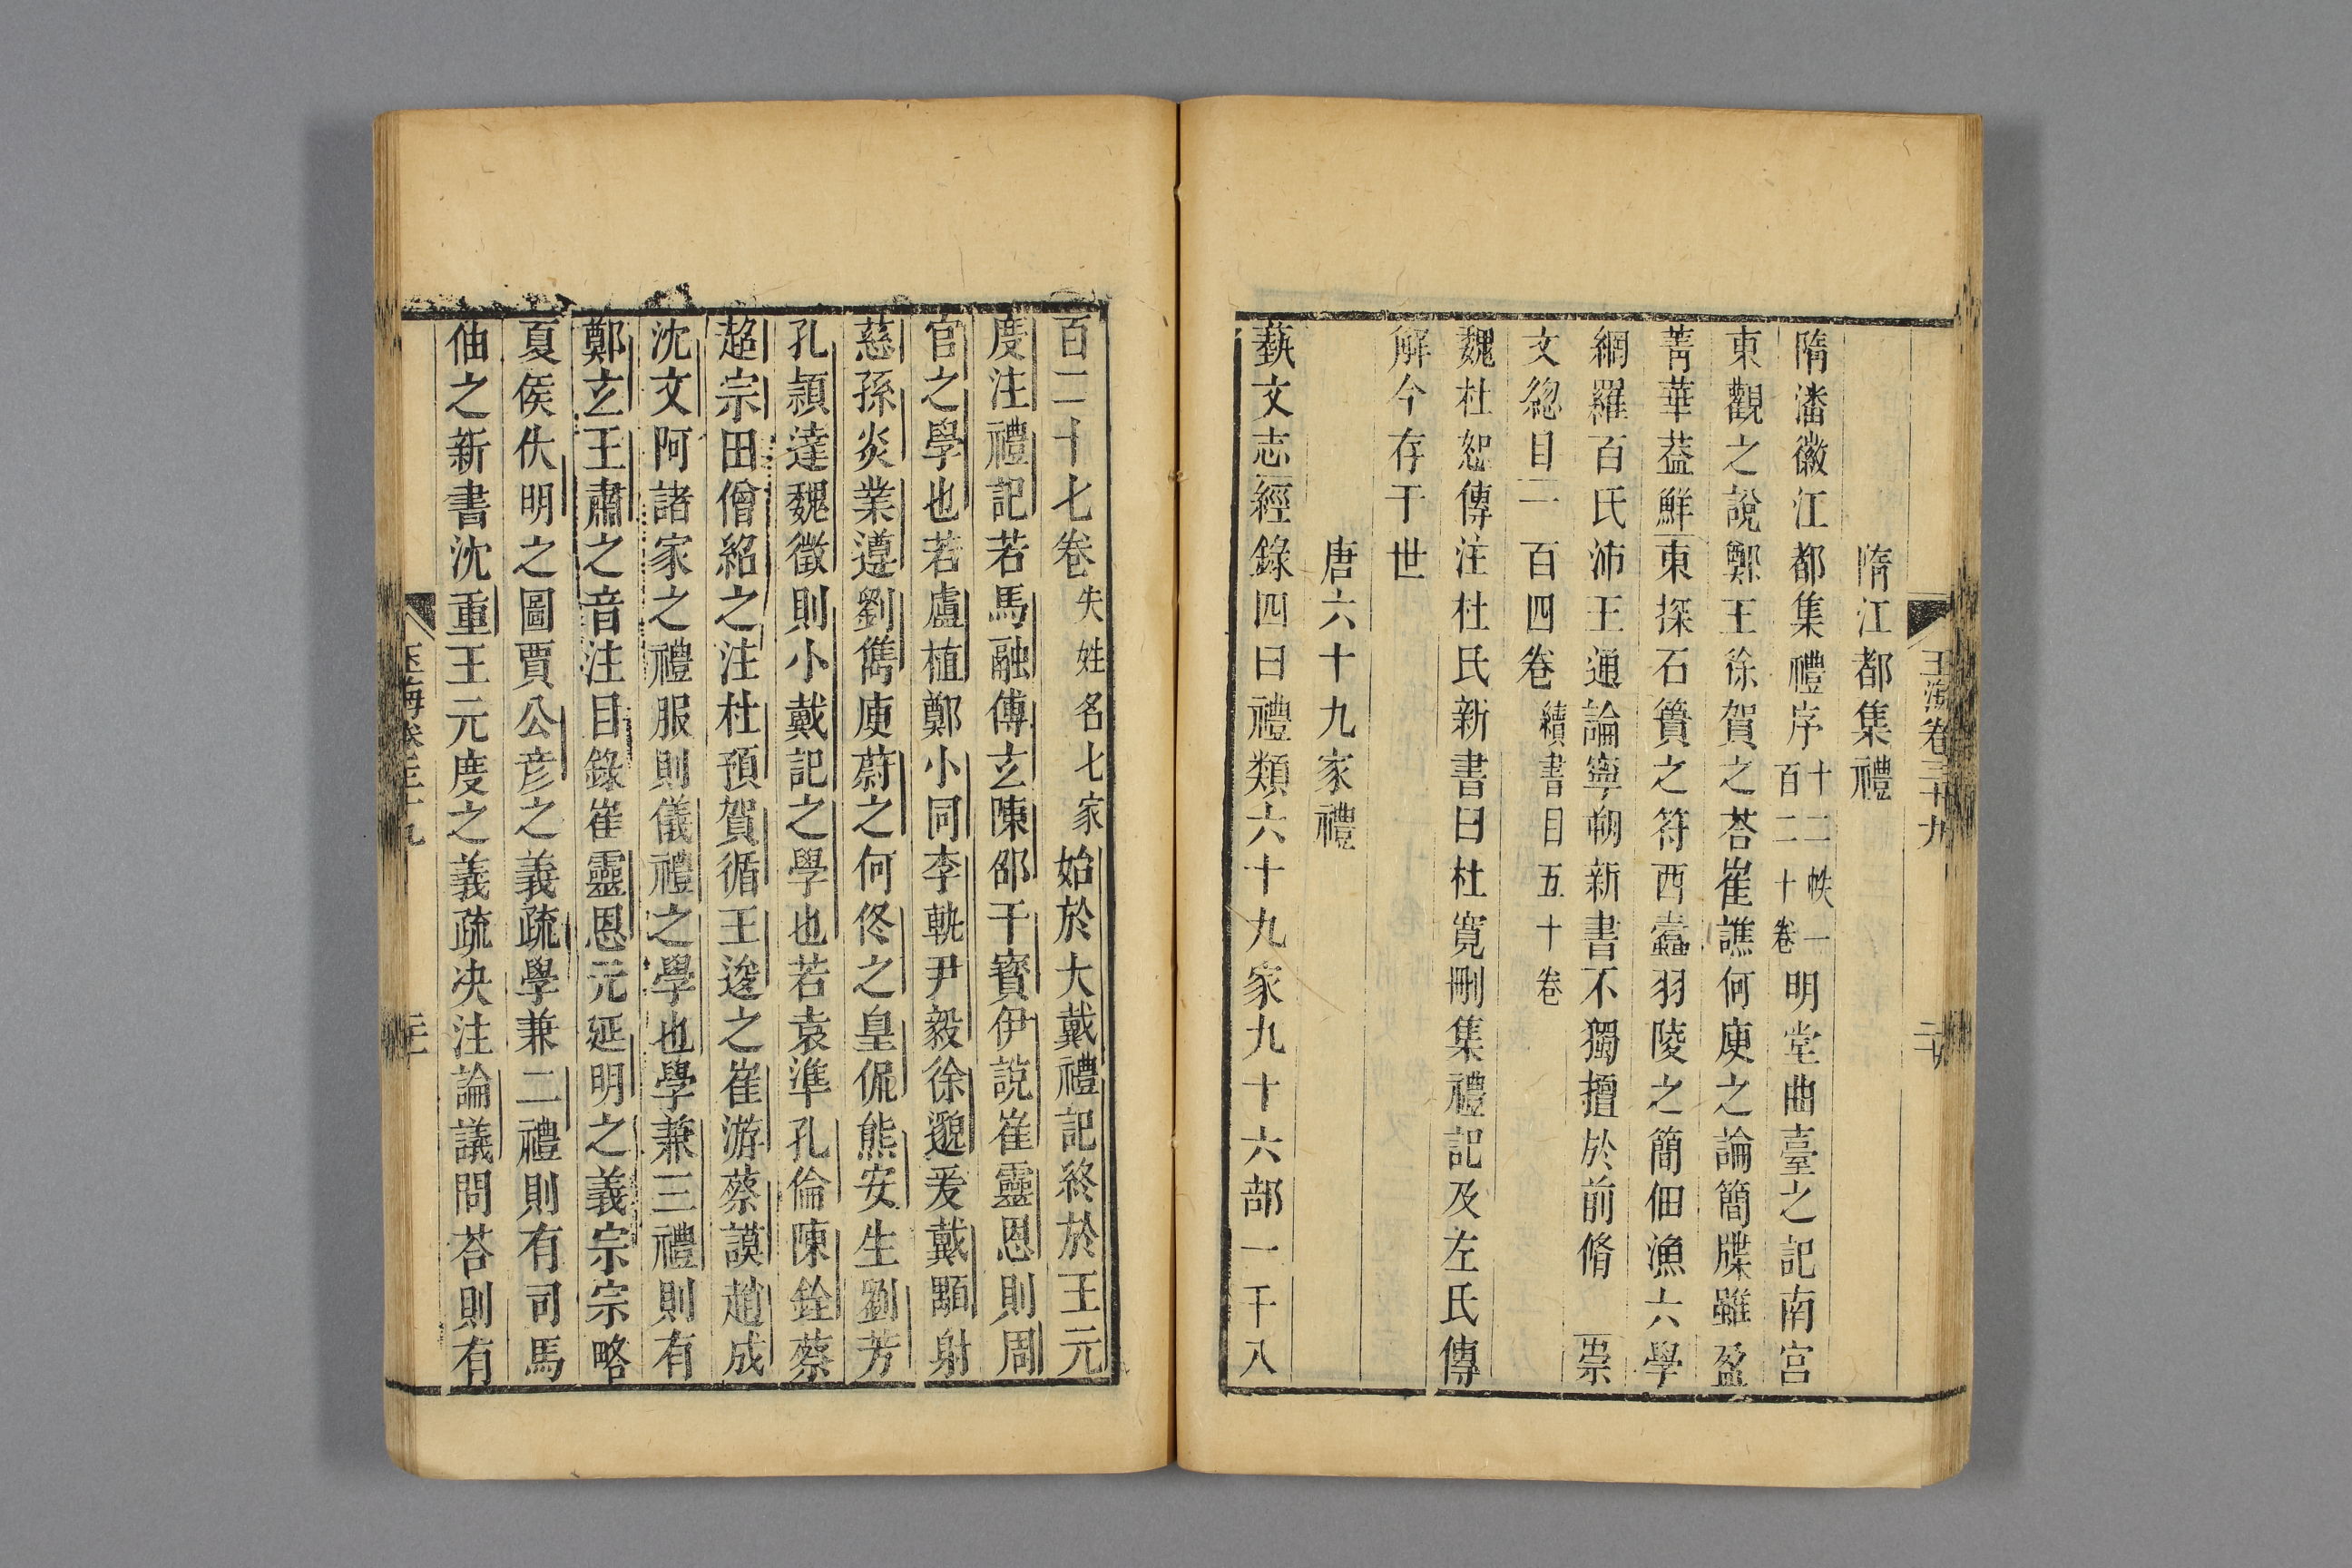 玉海卷三十九
隋江都集禮
隋潘徽江都集禮序十二帙一百二十卷明堂曲臺之記南宮
東觀之說鄭王徐賀之荅崔譙何庾之論簡牒雖盈
菁華葢鮮東探石簣之符西蠹羽陵之簡佃漁六學
網羅百氏沛王通論寧朔新書不獨擅於前脩 崇
文緫目一百四卷續書目五十卷
魏杜恕傳注杜氏新書曰杜寬刪集禮記及左氏傳
解今存于世
唐六十九家禮
藝文志經錄四曰禮類六十九家九十六部一千八
百二十七卷失姓名七家始於大戴禮記終於王元
度注禮記若馬融傅玄陳邵干寶伊說崔靈恩則周
官之學也若盧植鄭小同李軌尹毅徐邈爰戴顒射
慈孫炎業遵劉儁庾蔚之何佟之皇侃熊安生劉芳
孔頴達魏徵則小戴記之學也若袁準孔倫陳銓蔡
超宗田僧紹之注杜預賀循王逡之崔游蔡謨趙成
沈文阿諸家之禮服則儀禮之學也學兼三禮則有
鄭玄王肅之音注目錄崔靈恩元延明之義宗宗略
夏侯伏明之圖賈公彦之義疏學兼二禮則有司馬
伷之新書沈重王元度之義疏决注論議問荅則有
玉海卷三十九